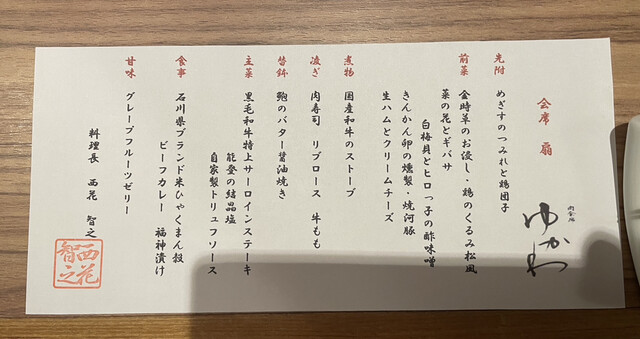 会席 扇
肉会席
ゆかわ
先附 めぎすのつみれと鶏団子
前菜 金時草のお浸し・鶏のくるみ松風
菜の花とギバサ
白梅貝とヒロっ子の酢味噌
きんかん卵の燻製・焼河豚
生ハムとクリームチーズ
煮物 国産和牛のストーブ
凌ぎ 肉寿司 リブロース 牛もも
替鉢 鮑のバター醤油焼き
主菜 黒毛和牛特上サーロインステーキ
能登の結晶塩
自家製トリュフソース
食事 石川県ブランド米ひゃくまん穀
ビーフカレー 福神漬け
甘味 グレープフルーツゼリー
料理長 西花 智之
西花
智之